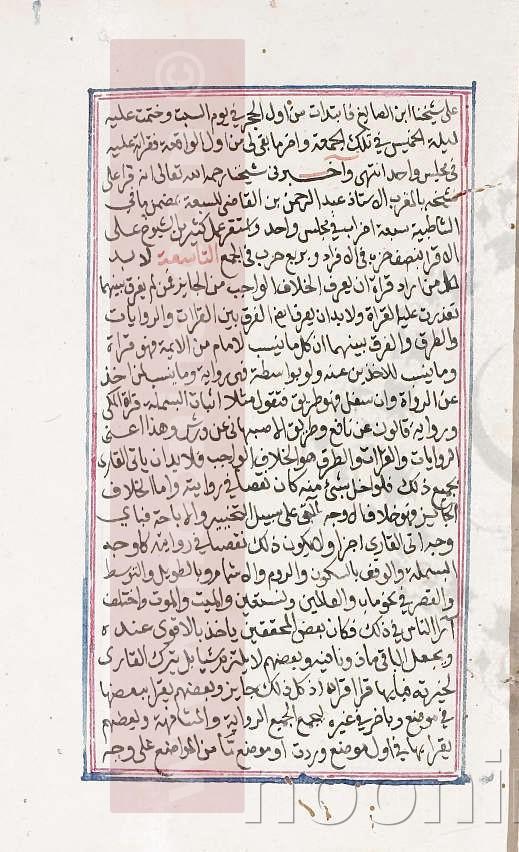 على شيخنا ابن الصائغ فابتدات من اول الحجر في يوم السبت وختمت عليه
ليلة الخميس في تلك الجمعة واخر ما بقى لى من اول الواقعة فقرأته عليه
في مجلس واحد انتهى وأخبرني شيخنا رحمه الله تعالى انه قرا على
شيخه بالمغرب الاستاذ عبد الرحمن بن القاضى للسبعة بمضمن ما فى
الشاطبية سبعة احزاب في مجلس واحد واستقر عمل كثير من الشيوخ على
الاقرا بنصف حزب في الافراد وبربع حزب في الجمع التاسعة لا بد
لكل من اراد قراة ان يعرف الخلاف الواجب من الجايز فمن لم يفرق بينهما
تعذرت عليه القراة ولا بد ان يعرف ايضا الفرق بين القراات والروايات
والطرق والفرق بينهما ان كل ما ينسب لامام من الائمة فهو قراة
وما ينسب للاخذين عنه ولو بواسطة فهى رواية وما ينسب لمن اخذ
عن الرواة وان سفل فهو طريق فتقول مثلا اثبات البسملة قراة المكى
ورواية قالون عن نافع وطريق الاصبهانى عن ورش وهذا اعنى
الروايات والقراات والطرق هو الخلاف الواجب فلا بد ان ياتى القارى
بجميع ذلك فلو اخل بشئ منه كان نقصا في روايته واما الخلاف
الجايز فهو خلاف الاوجه التى على سبيل التخيير والاباحة فباى
وجه اتى القارى اجزا ولا يكون ذلك نقصا في روايته كاوجه
البسملة والوقف بالسكون والروم والاشمام وبالطويل والتوسط
والقصر في نحو ماب والعالمين ونستعين والميت والموت واختلف
آرا الناس في ذلك فكان بعض المحققين ياخذ بالاقوى عنده
ويجعل الباقى ماذونا فيه وبعضهم لا يلتزم شيا بل يترك القارى
لخيرته فبايها قرا اقراه اذ كل ذلك جايز وبعضهم يقرا ببعضها
في موضع وباخر في غيره ليجمع الجميع الرواية والمشافهة وبعضهم
يقرا بها في اول موضع وردت او موضع ما من المواضع على وجه